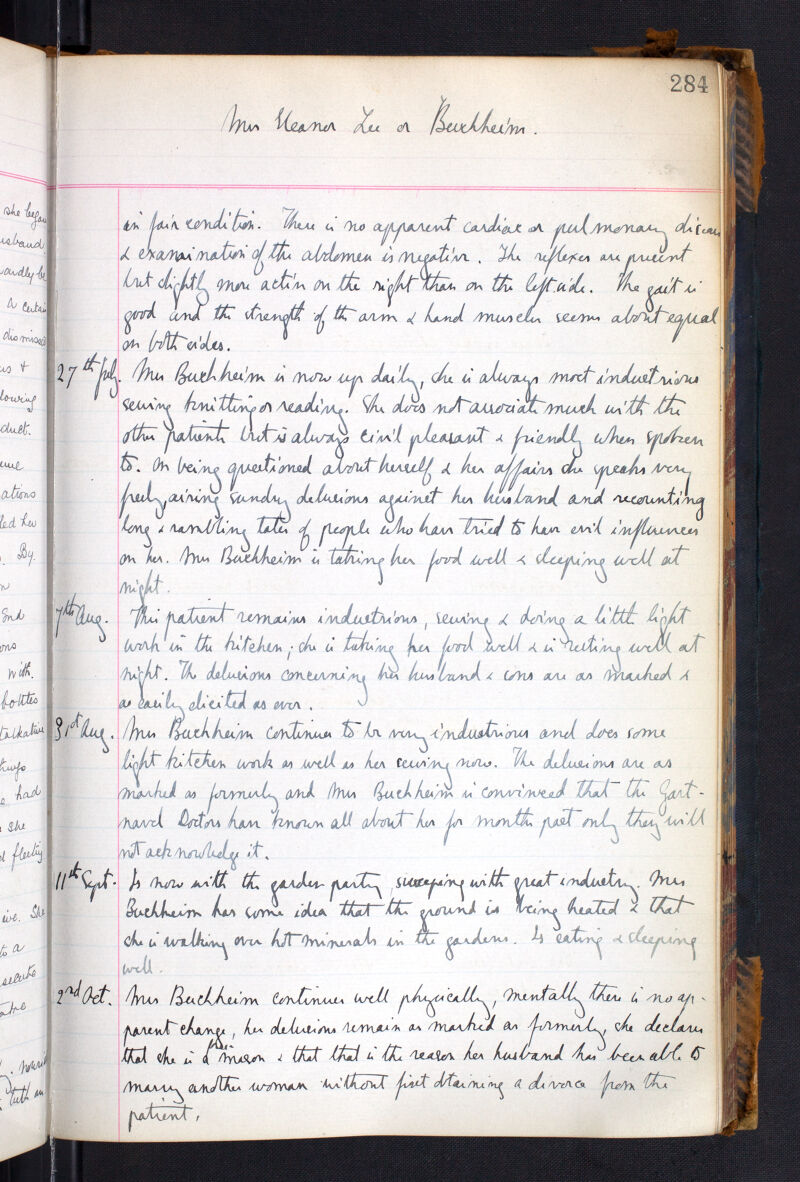 284
Mrs Eleanor Lee or Buchheim.
in fair condition. There is no apparent cardiac or pulmonary disease
& examination of the abdomen is negative. The reflexes are present
but slightly more active on the right than on the left side. The gait is
good and the strength of the arm & hand muscles seems about equal
on both sides.
27th July. Mrs Buchheim is now up daily, she is always most industrious
sewing knitting or reading. She does not associate much with the
other patients but is always civil pleasant & friendly when spoken
to. On being questioned about herself & her affairs she speaks very
freely, airing sundry delusions against her husband and recounting
long & rambling tales of people who have tried to have evil influences
on her. Mrs Buchheim is taking her food well & sleeping well at
night.
7th Aug. This patient remains industrious, sewing & doing a little light
work in the kitchen; she is taking her food well & is resting well at
night. The delusions concerning her husband & sons are as marked &
as easily elicited as ever.
31st Aug. Mrs Buchheim continues to be very industrious and does some
light kitchen work as well as her sewing now. The delusions are as
marked as formerly and Mrs Buchheim is convinced that the Gart-
navel Doctors have known all about her for months past only they will
not acknowledge it.
11th Sept. Is now with the garden party, sweeping with great industry. Mrs
Buchheim has some idea that the ground is being heated & that
she is walking over hot minerals in the gardens. Is eating & sleeping
well.
2nd Oct. Mrs Buchheim continues well physically, mentally there is no ap-
parent change, her delusions remain as marked as formerly, she declares
that she is a mason & that that is the reason her husband has been able to
marry another woman without first obtaining a divorce from the
patient.
she began
husband
hardly be
a certain
dismissed
us &
lowing
duct.
ations
led her
. By
and
ons
with.
bottles
talkative
had
she
d fleeting
ive. She
to a